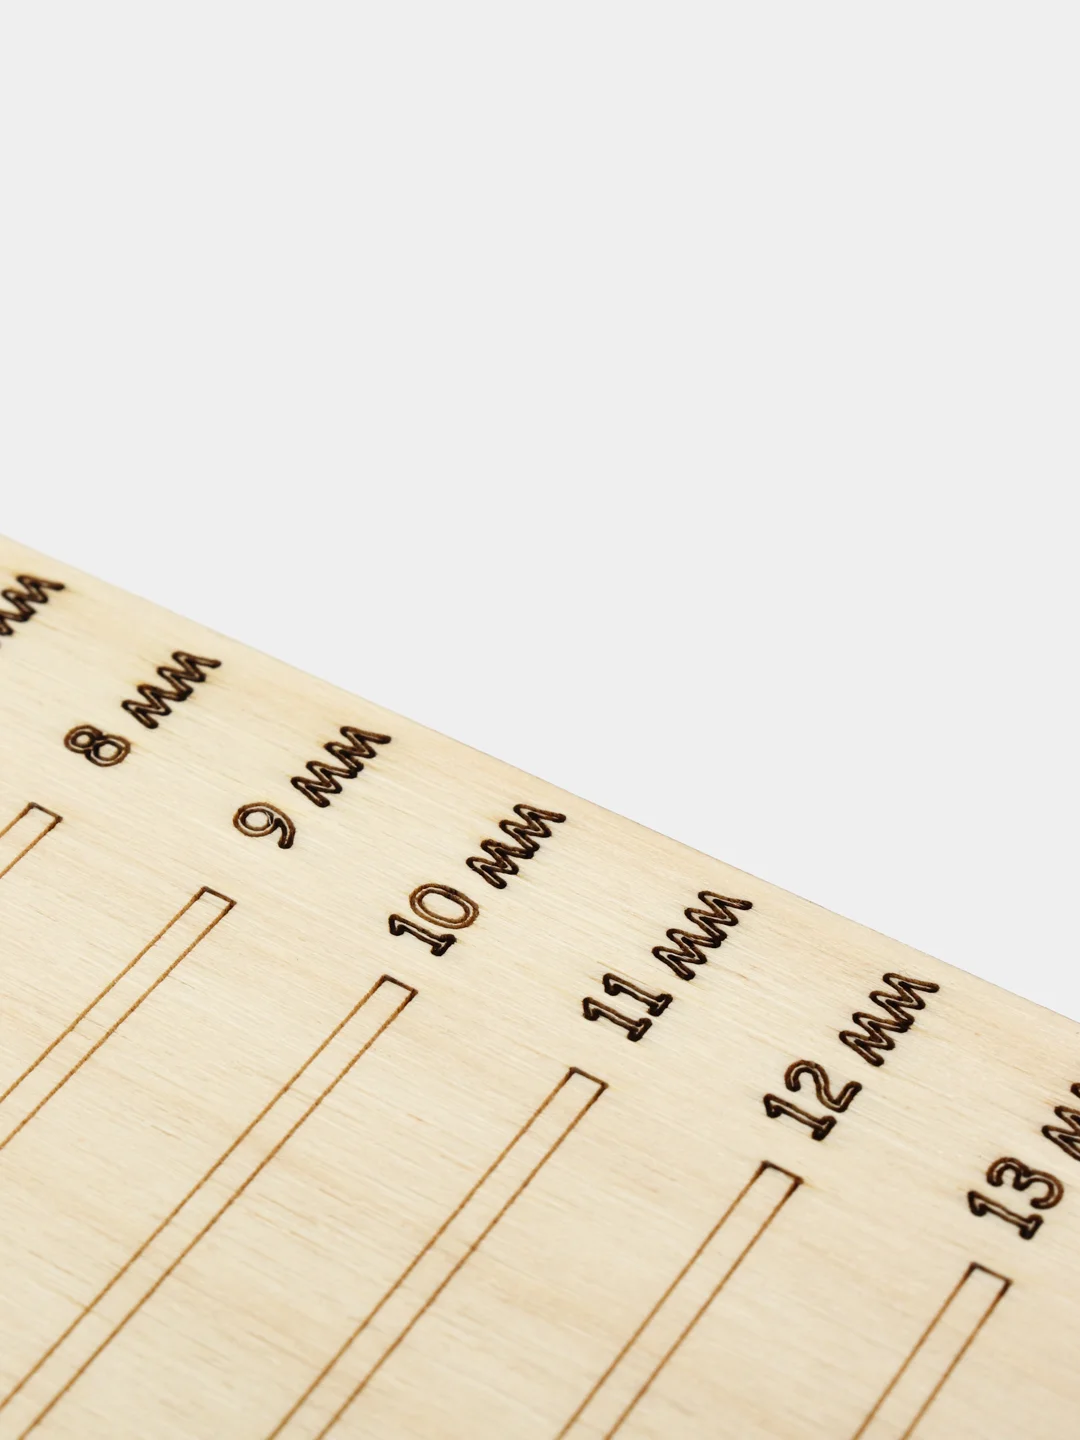 мм
8 мм
9 мм
10 мм
11 мм
12 мм
13 м